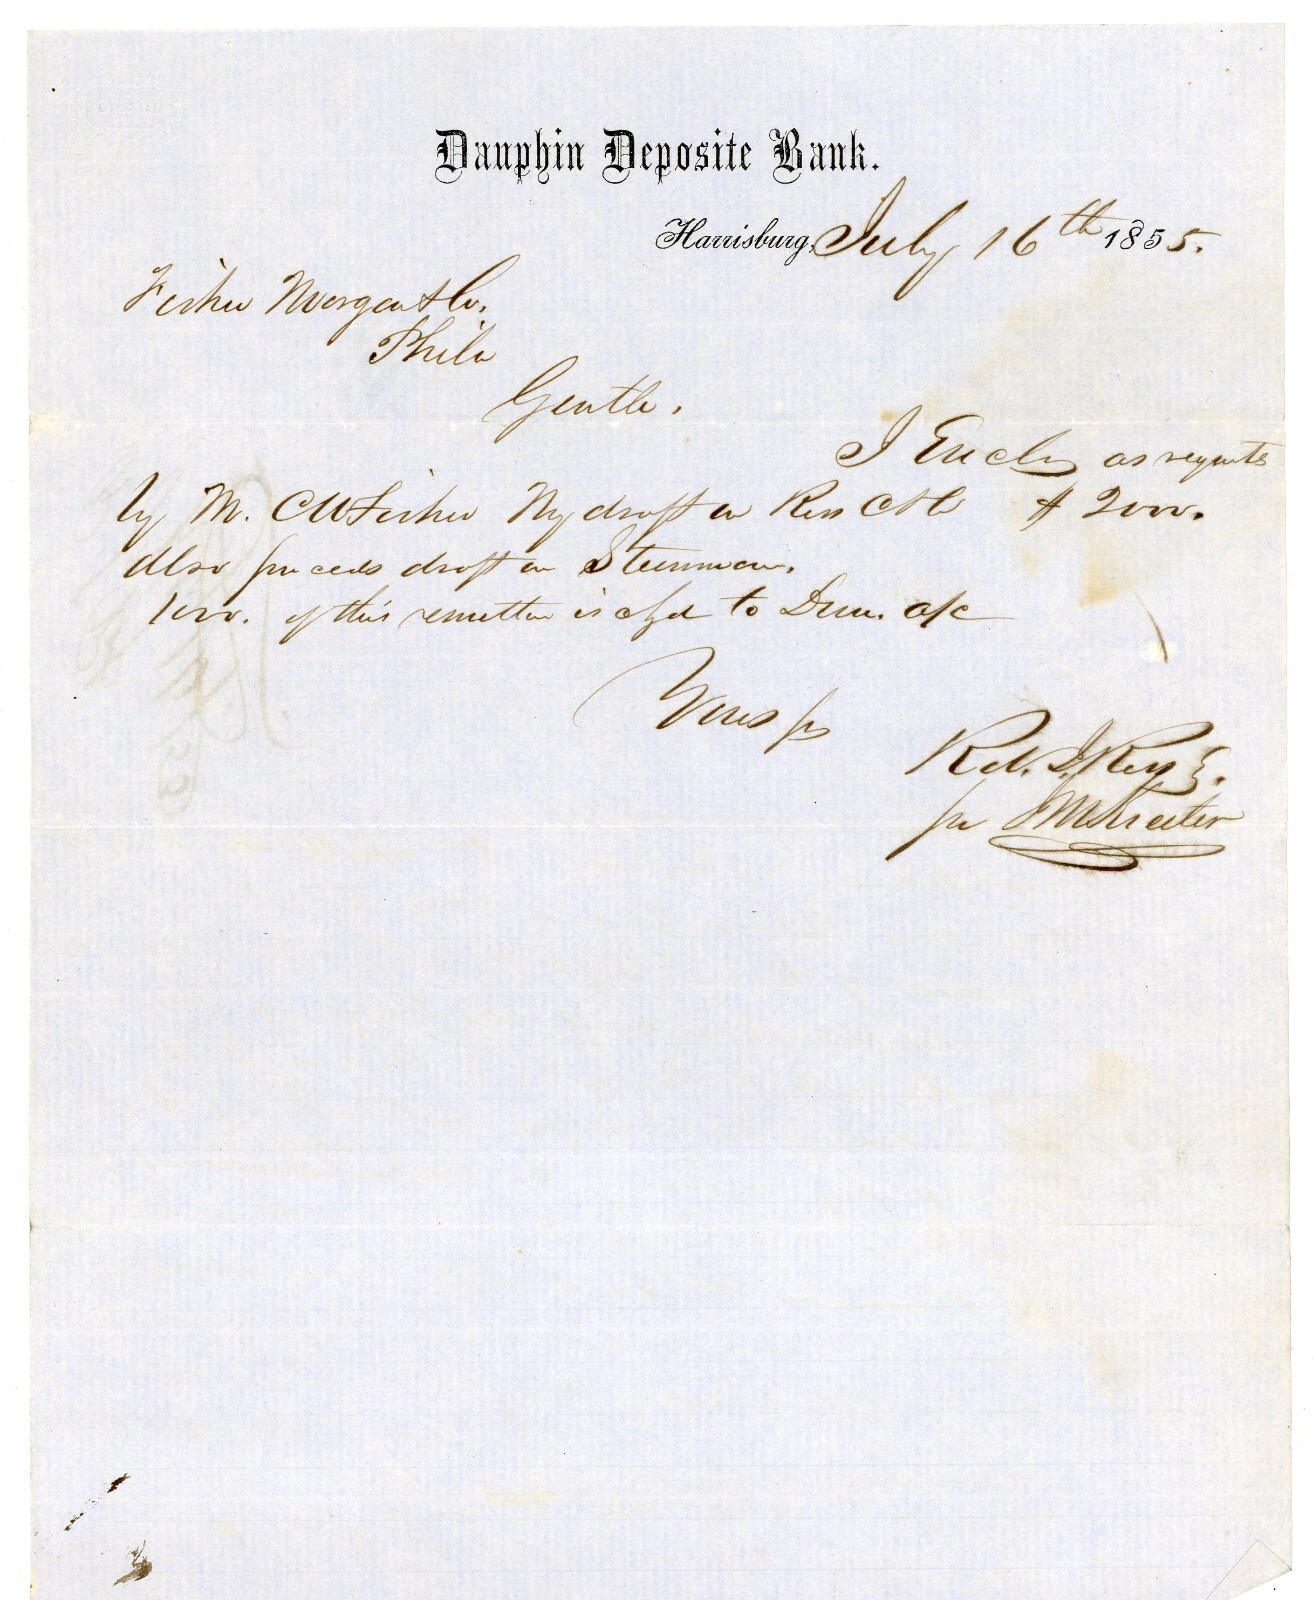 Dauphin Deposite Bank.
Harrisburg, July 16th 1855.
Fisher Morgan & Co.
Phila
Gentle.
I Enclo as requests
by M. C W Fisher My draft on Ross C & Co $ 2000.
Also proceeds draft on Steinman.
1000. of this remittan is chgd to Dun. a/c
Yours
Rob. J. Ross
pr